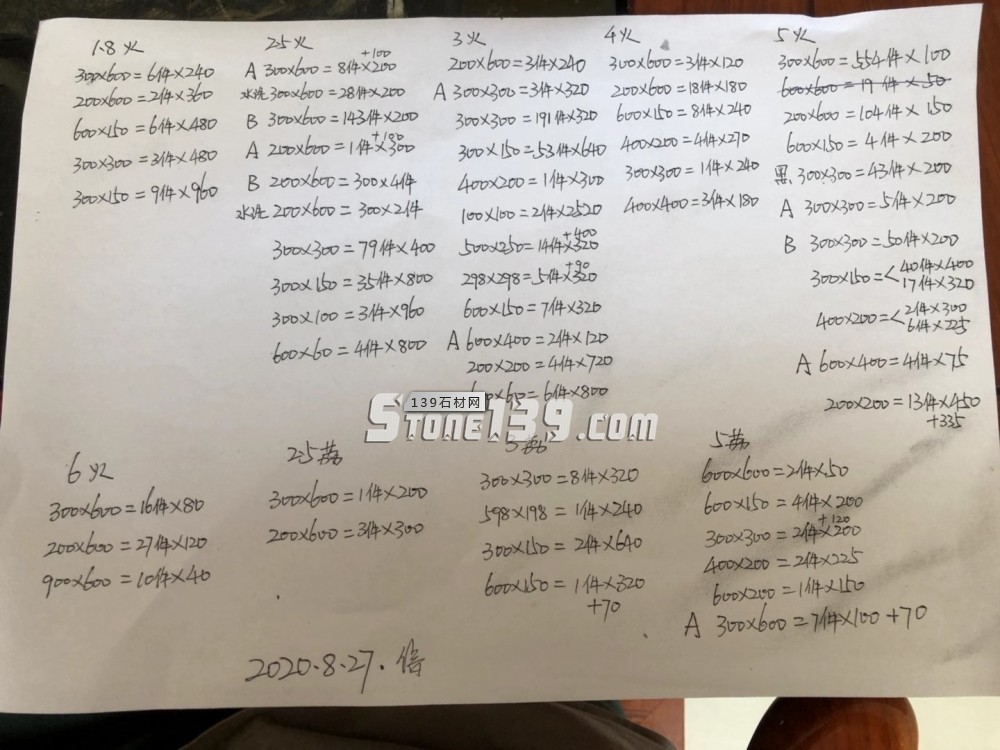 1.8火
300×600=6件×240
200×600=2件×360
600×150=6件×480
300×300=3件×480
300×150=9件×960
2.5火
+100
A 300×600=8件×200
水洗 300×600=28件×200
B 300×600=143件×200
+180
A 200×600=1件×300
B 200×600=300×4件
水洗 200×600=300×2件
300×300=79件×400
300×150=35件×800
300×100=3件×960
600×60=4件×800
3火
200×600=3件×240
A 300×300=3件×320
300×300=191件×320
300×150=53件×640
400×200=1件×300
100×100=2件×2520
+400
500×250=14件×320
+90
298×298=5件×320
600×150=7件×320
A 600×400=2件×120
200×200=4件×720
=6件×800
4火
300×600=3件×120
200×600=18件×180
600×150=8件×240
400×200=4件×270
300×300=1件×240
400×400=3件×180
5火
300×600=554件×100
600×600=19件×50
200×600=104件×150
600×150=4件×200
黑 300×300=43件×200
A 300×300=5件×200
B 300×300=50件×200
300×150=<40件×400
17件×320
400×200=<2件×300
6件×225
A 600×400=4件×75
200×200=13件×450
+335
139石材网
STONE139.com
6火
300×600=16件×80
200×600=27件×120
900×600=10件×40
2.5荔
300×600=1件×200
200×600=3件×300
3荔
300×300=8件×320
598×198=1件×240
300×150=2件×640
600×150=1件×320
+70
5荔
600×600=2件×50
600×150=4件×200
+120
300×300=2件×200
400×200=2件×225
600×200=1件×150
A 300×600=7件×100+70
2020.8.27.